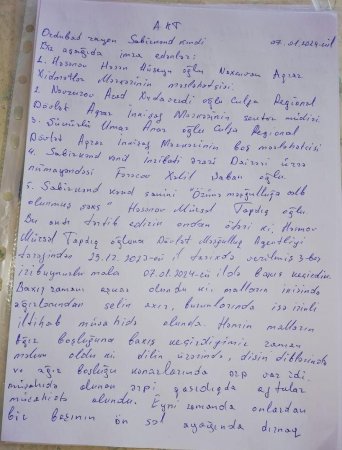 AKT
Ordubad rayon Sabirkənd kəndi 07.01.2024-cü il
Biz aşağıda imza edənlər:
1. Həsənov Həsən Hüseyn oğlu Naxçıvan Aqrar
Xidmətlər Mərkəzinin məsləhətçisi.
2. Novruzov Azad Xudaverdi oğlu Culfa Regional
Dövlət Aqrar İnkişaf Mərkəzinin sektor müdiri
3. Ümar Anar oğlu Culfa Regional
Dövlət Aqrar İnkişaf Mərkəzinin baş məsləhətçisi
4. Sabirkənd kənd inzibati ərazi Dairəsi üzrə
nümayəndəsi Fərəcov Xəlil Şaban oğlu.
5. Sabirkənd kənd sakini "Özünü məşğulluğa cəlb
olunmuş şəxs" Həsənov Mürsəl Tapdıq oğlu.
Bu aktı tərtib edirik ondan ötəri ki, Həsənov
Mürsəl Tapdıq oğluna Dövlət Məşğulluq Agentliyi
tərəfindən 29.12.2023-cü il tarixdə verilmiş 3-baş
iribuynuzlu mala 07.01.2024-cü ildə baxış keçirdim.
Baxış zamanı aşkar olundu ki, malların ikisində
ağızlarından selin axır, burunlarında isə irinli
iltihab müşahidə olundu. Həmin malların
Ağız boşluğuna baxış keçirdiyimiz zaman
məlum oldu ki dilin üzərində, dişin diblərində
və ağız boşluğu kənarlarında ərp var idi.
müşahidə olunan ərpi qaşıdıqda aftalar
müşahidə olundu. Eyni zamanda onlardan
bir başının ön sol ayağında dırnaq